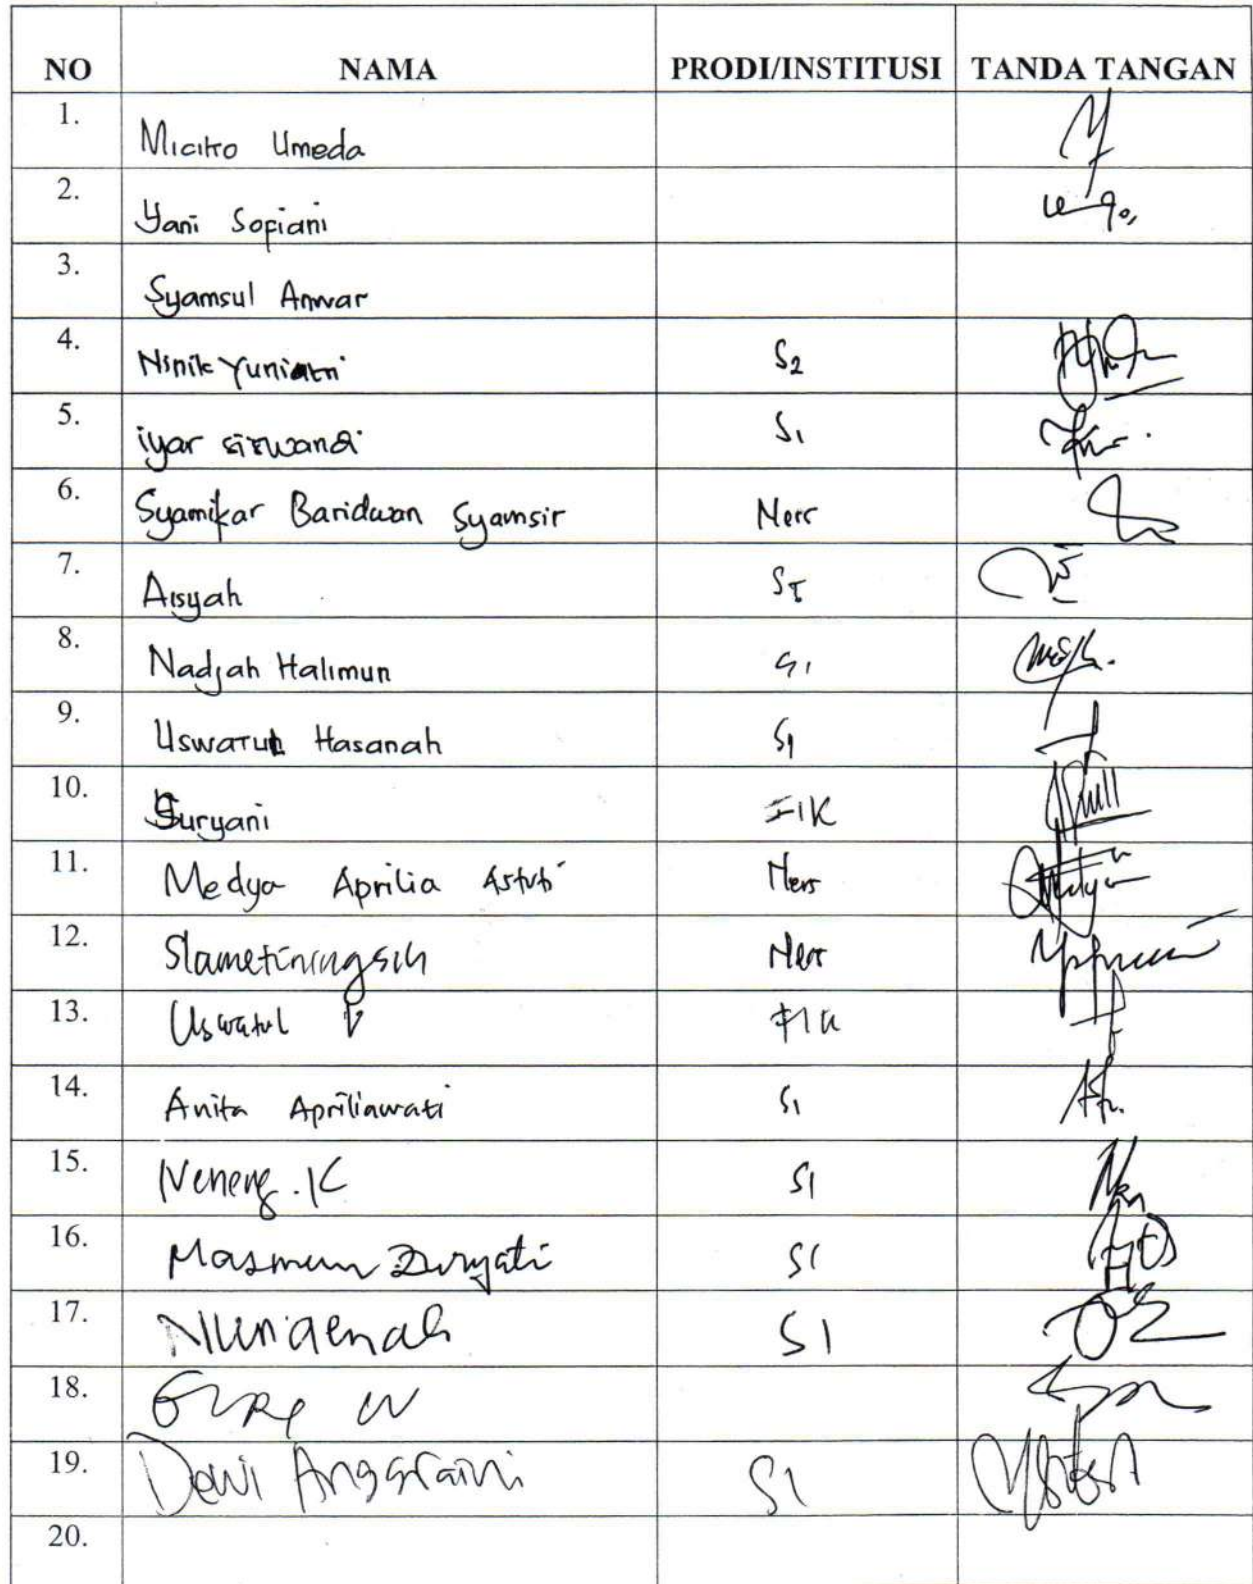 NO NAMA PRODI/INSTITUSI TANDA TANGAN
1. Miciko Umeda
2. Yani Sopiani
3. Syamsul Anwar
4. Ninik Yuniatri S2
5. iyar siswandi S1
6. Syamikar Baridwan Syamsir Ners
7. Aisyah S1
8. Nadjah Halimun S1
9. Uswatun Hasanah S1
10. Suryani FIK
11. Medya Aprilia Astuti Ners
12. Slametiningsih Ners
13. Uswatul FIK
14. Anita Apriliawati S1
15. Neneng. K S1
16. Masmun Zuryati S1
17. Nuraenah S1
18.
19. Dewi Anggraini S1
20.